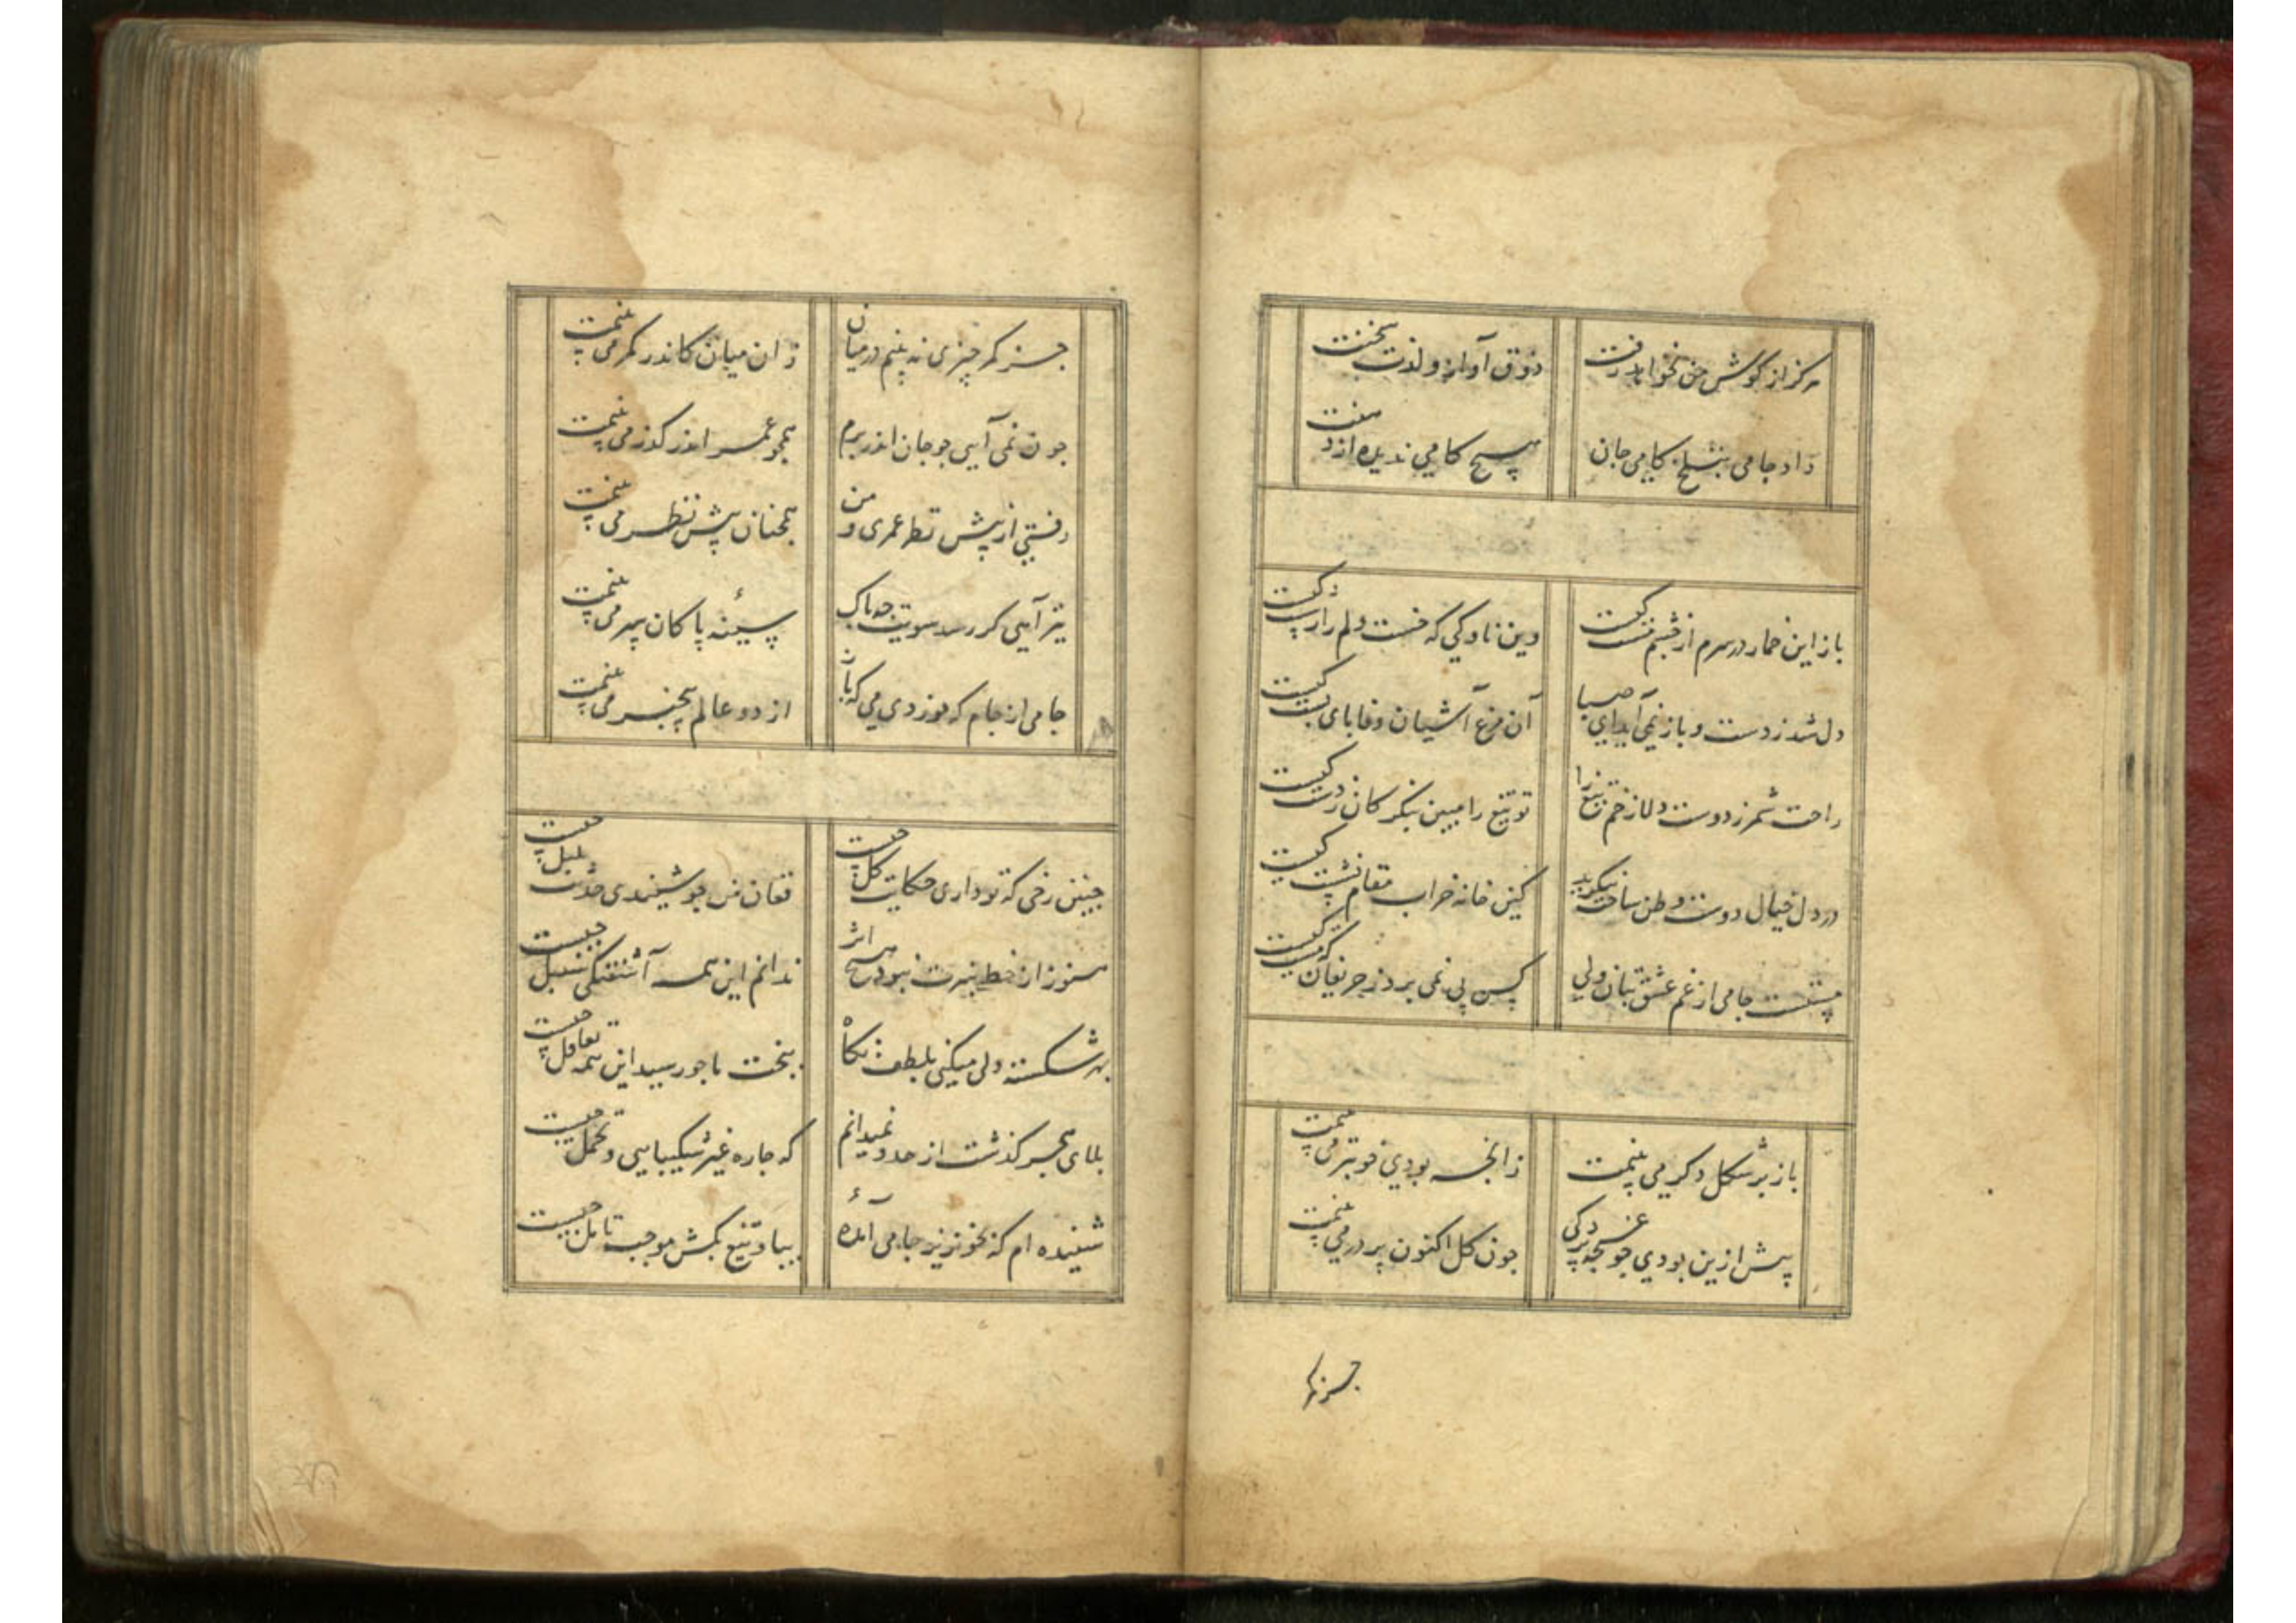 هرکز از کوش من نخواهد رفت
ذوق آواز و لذت سخنت
داد جامی بتلخ کامی جان
هیچ کامی ندیده از دهنت
باز این خمار در سرم از چشم مست کیست
وین ناوکی که خست دلم را ز شست کیست
دل شد ز دست و باز نمی آید ای صبا
آن مرغ آشیان وفا پای بست کیست
راحت شمر ز دوست دلا زخم تیغ را
تو تیغ را مبین بنکر کان ز دست کیست
در دل خیال دوست وطن ساخت
کین خانه خراب مقام نشست کیست
مستست جامی از غم عشق بتان ولی
کس پی نمی برد ز حریفان که مست کیست
باز بر شکل دکر می بینمت
زانچه بودی خوبتر می بینمت
پیش ازین بودی جو غنچه پردکی
جون کل اکنون پرده در می بینمت
جز کمر
جز کمر چیزی نه بینم در میان
زان میان کاندر کمر می بینمت
جون نمی آیی جو جان اندر برم
همجو عمر اندر کذر می بینمت
رفتی از پیش نظر عمری و من
همجنان پیش نظر می بینمت
تیر آهی کر رسد سویت جه باک
سینه پاکان سپر می بینمت
جامی از جام که خوردی می که باز
از دو عالم بیخبر می بینمت
جنین رخی که تو داری حکایت کل جیست
فغان من جو شنیدی حدیث بلبل جیست
هنوز از خط سبزت نبود هیچ اثر
ندانم این همه آشفتکی سنبل جیست
بهر شکسته دلی میکنی بلطف نکاه
بخت ما جو رسید این همه تغافل جیست
بلای هجر کذشت از حد و نمیدانم
که جاره غیر شکیبایی و تحمل جیست
شنیده ام که بخونریز جامی آمدهٔ
بیا و تیغ بکش موجب تامل جیست